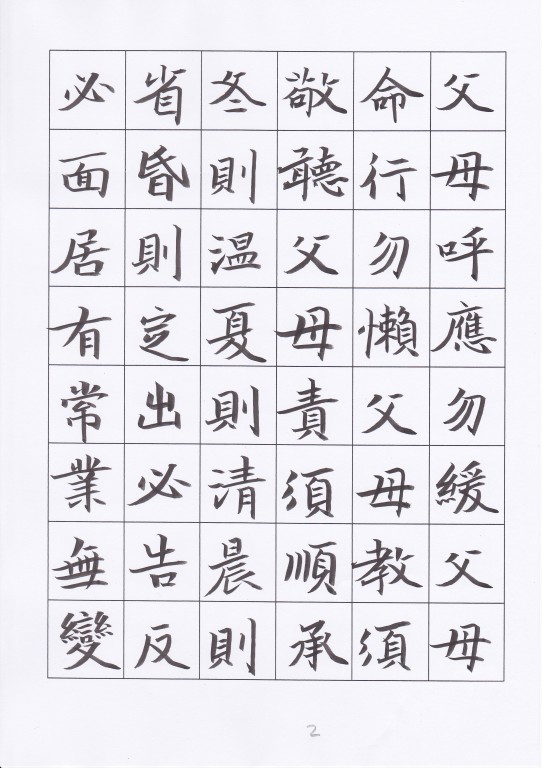 父母呼應勿緩父母
命行勿懶父母教須
敬聽父母責須順承
冬則温夏則清晨則
省昏則定出必告反
必面居有常業無變
2